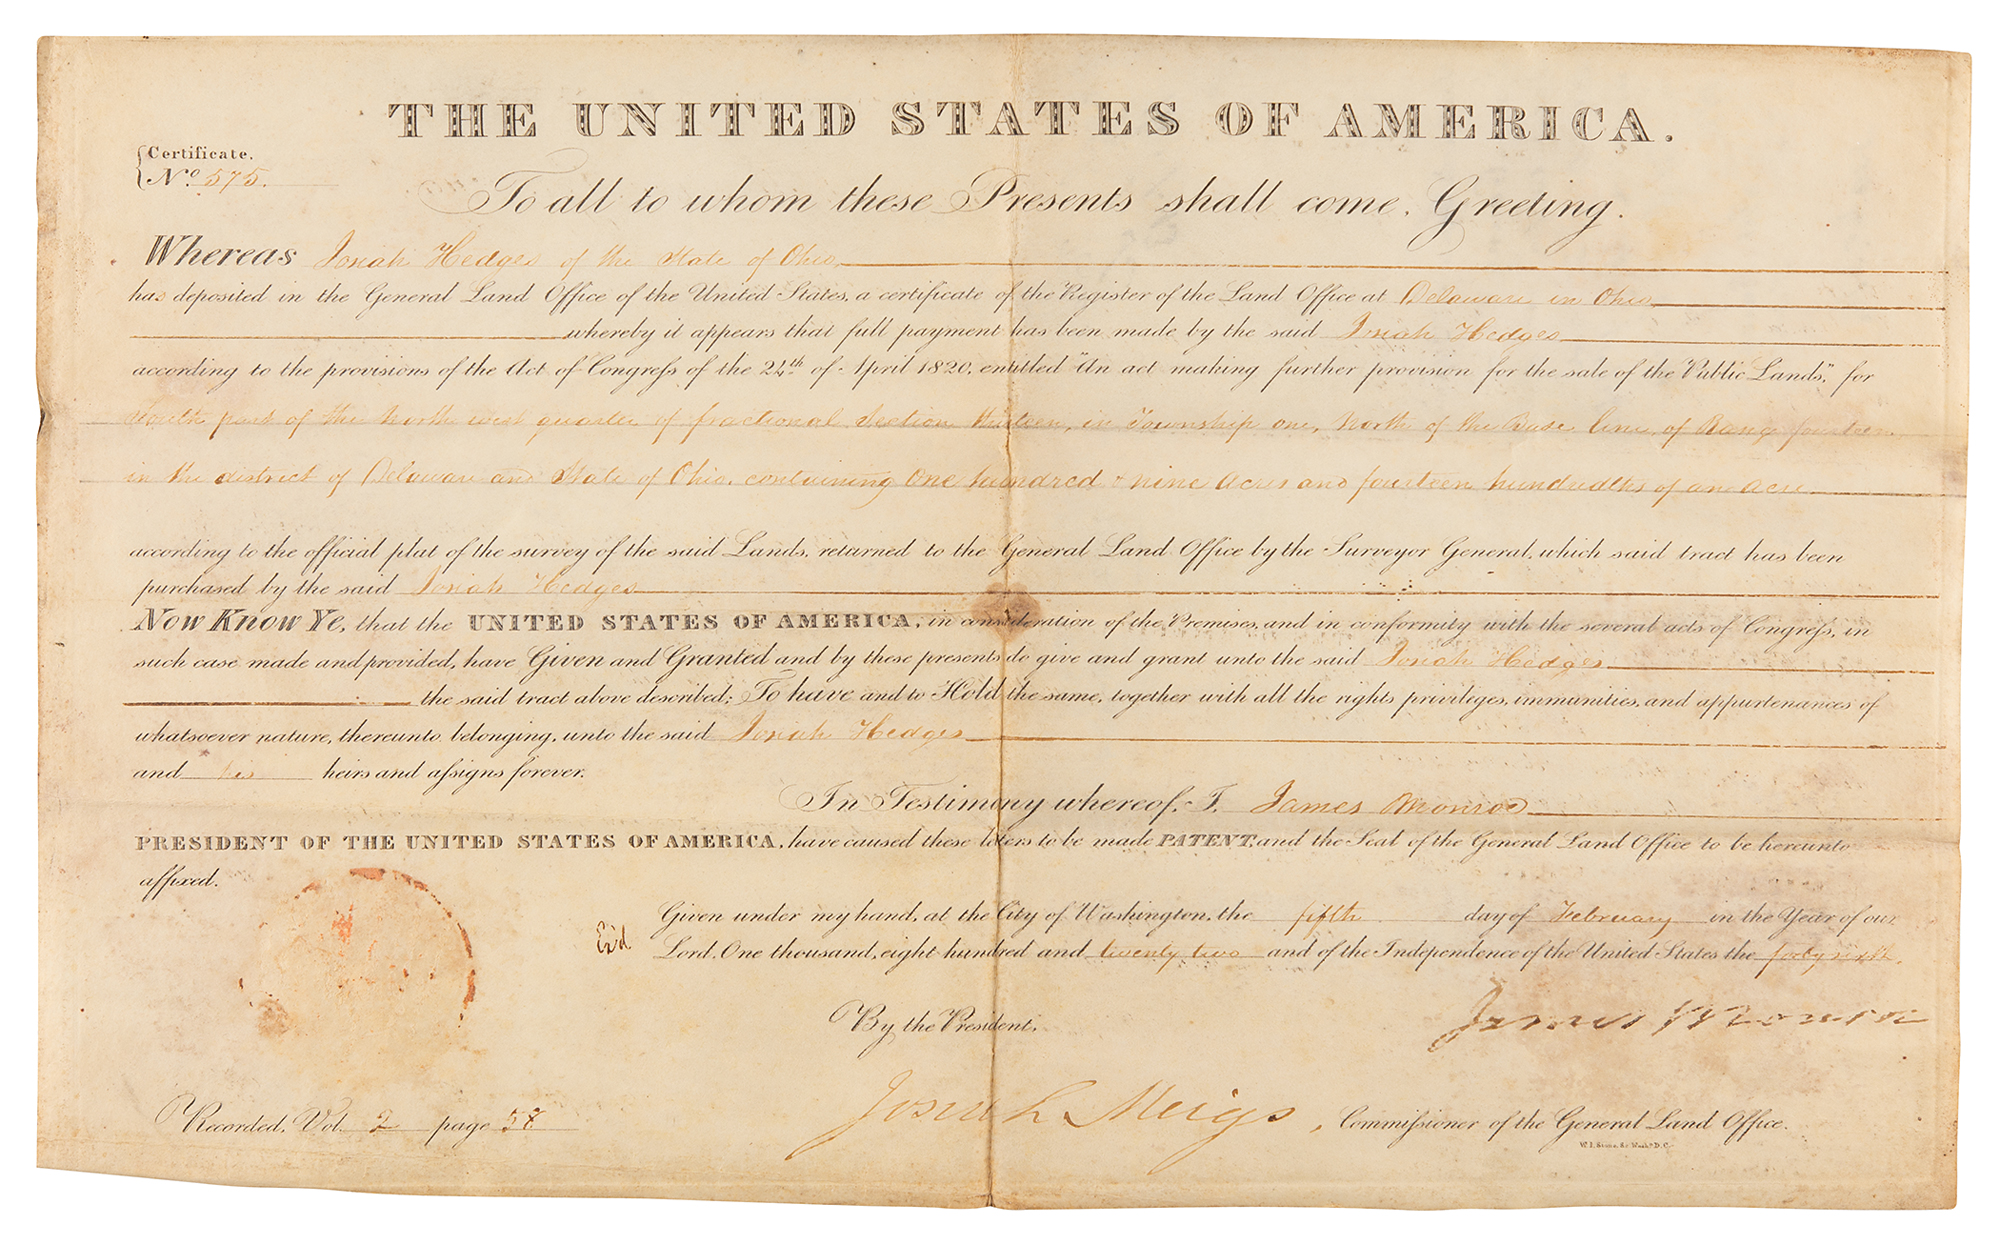 THE UNITED STATES OF AMERICA.
Certificate.
No. 575.
To all to whom these Presents shall come, Greeting.
Whereas Josiah Hedges of the State of Ohio
has deposited in the General Land Office of the United States, a certificate of the Register of the Land Office at Delaware in Ohio
whereby it appears that full payment has been made by the said Josiah Hedges
according to the provisions of the Act of Congress of the 24th of April 1820, entitled "An act making further provision for the sale of the Public Lands", for
South part of the North west quarter of fractional Section thirteen, in Township one, North of the Base line, of Range fourteen
in the district of Delaware and State of Ohio, containing One hundred & nine Acres and fourteen hundredths of an acre
according to the official plat of the survey of the said Lands, returned to the General Land Office by the Surveyor General, which said tract has been
purchased by the said Josiah Hedges
Now Know Ye, that the UNITED STATES OF AMERICA, in consideration of the Premises, and in conformity with the several acts of Congress, in
such case made and provided, have Given and Granted and by these presents do give and grant unto the said Josiah Hedges
the said tract above described; To have and to Hold the same, together with all the rights privileges, immunities, and appurtenances of
whatsoever nature, thereunto belonging, unto the said Josiah Hedges
and his heirs and assigns forever.
In Testimony whereof, I, James Monroe
PRESIDENT OF THE UNITED STATES OF AMERICA, have caused these letters to be made PATENT, and the Seal of the General Land Office to be hereunto
affixed.
Given under my hand, at the City of Washington, the fifth day of February in the Year of our
Ex'd
Lord, One thousand, eight hundred and twenty two and of the Independence of the United States the forty sixth.
By the President,
James Monroe
Josiah Meigs, Commissioner of the General Land Office.
Recorded, Vol. 2 page 58
W.I. Stone, Sc. Washn D.C.